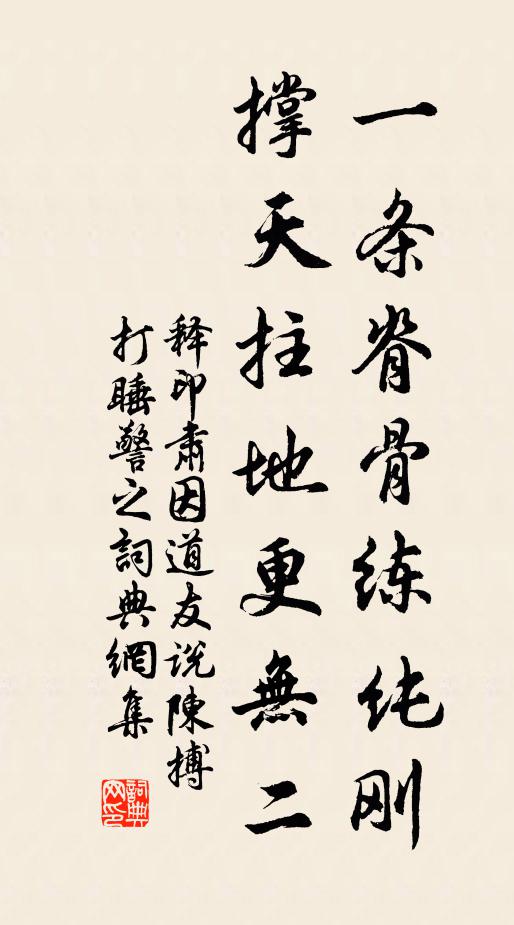 一条脊骨练纯刚
撑天拄地更無二
释印肃因道友说陳搏
打睡警之詞典網集
詞典网印